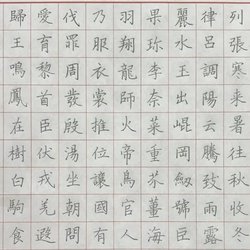 列張寒來暑往秋收冬
律呂調陽云騰致雨露
麗水玉出崐岡劒號巨
果珍李柰菜重芥薑海
羽翔龍師火帝鳥官人
乃服衣裳推位讓國有
伐罪周發殷湯坐朝問
愛育黎首臣伏戎羌遐
歸王鳴鳳在樹白駒食